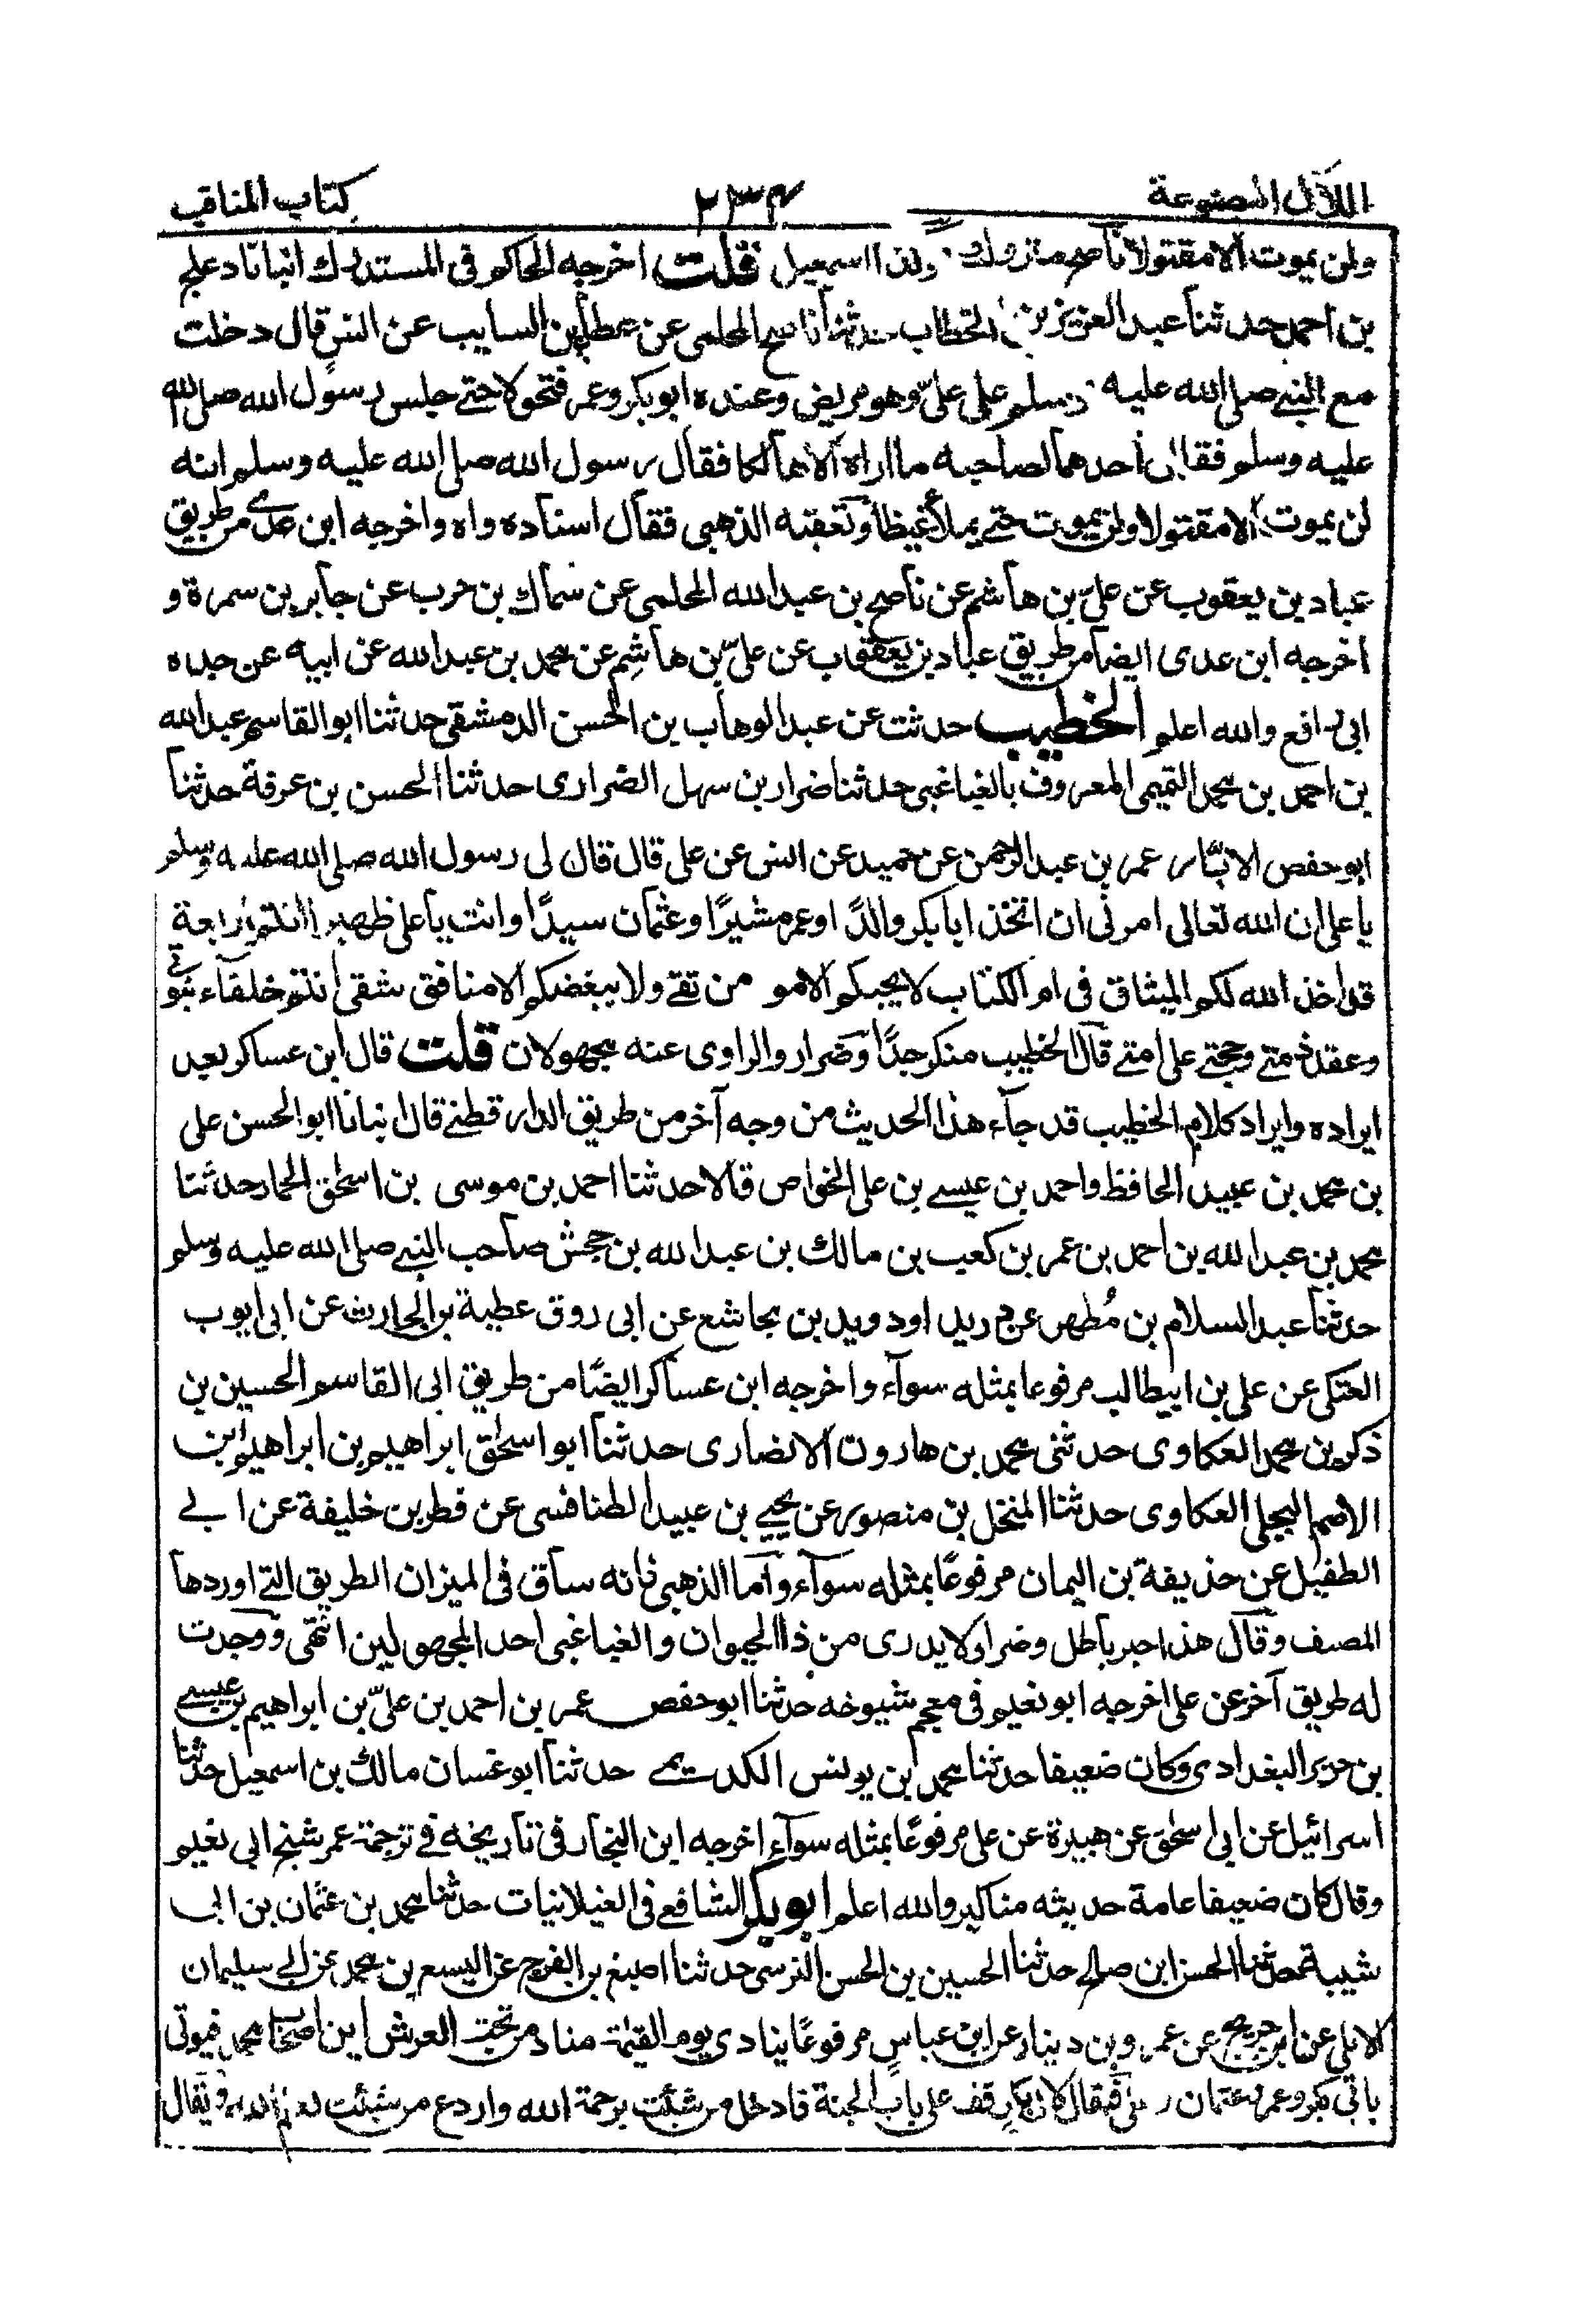 اللآلى المصنوعة
٢٣٤
كتاب المناقب
ولن يموت الا مقتولا ناصح متروك وكذا اسمعيل قلت اخرجه الحاكم فى المستدرك انبانا دعلج
بن احمد حدثنا عبد العزيز بن الخطاب حدثنا ناصح المحلمى عن عطا بن السايب عن انس قال دخلت
مع النبى صلى الله عليه وسلم على علىّ وهو مريض وعنده ابو بكر وعمر فتحولا حتى جلس رسول الله صلى الله
عليه وسلم فقال احدهما لصاحبه ما اراه الا هالكا فقال رسول الله صلى الله عليه وسلم انه
لن يموت الا مقتولا ولن يموت حتى يملأ غيظا وتعقبه الذهبى فقال اسناده واه واخرجه ابن عدى من طريق
عباد بن يعقوب عن علىّ بن هاشم عن ناصح بن عبد الله المحلمى عن سماك بن حرب عن جابر بن سمرة و
اخرجه ابن عدى ايضا من طريق عباد بن يعقوب عن علىّ بن هاشم عن محمد بن عبد الله عن ابيه عن جده
ابى رافع والله اعلم الخطيب حدثت عن عبد الوهاب بن الحسن الدمشقى حدثنا ابو القاسم عبد الله
بن احمد بن محمد التميمى المعروف بالغباغبى حدثنا ضرار بن سهل الضرارى حدثنا الحسن بن عرفة حدثنا
ابو حفص الابّار عمر بن عبد الرحمن عن حميد عن انس عن على قال قال لى رسول الله صلى الله عليه وسلم
يا على ان الله تعالى امرنى ان اتخذ ابا بكر والدًا وعمر مشيرًا وعثمان سيدًا وانت يا على ظهيرا انتم اربعة
قد اخذ الله لكم الميثاق فى ام الكتاب لا يحبكم الا مومن تقى ولا يبغضكم الا منافق شقى انتم خلفاء نبوتى
وعقد ذمتى وحجتى على امتى قال الخطيب منكر جدًا وضرار والراوى عنه مجهولان قلت قال ابن عساكر بعد
ايراده وايراد كلام الخطيب قد جآء هذا الحديث من وجه آخر من طريق الدارقطنى قال انبانا ابو الحسن على
بن محمد بن عبيد الحافظ واحمد بن عيسى بن على الخواص قالا حدثنا احمد بن موسى بن اسحق الحمار حدثنا
محمد بن عبد الله بن احمد بن عمر بن كعب بن مالك بن عبد الله بن جحش صاحب النبى صلى الله عليه وسلم
حدثنا عبد السلام بن مُطهر عن دريد او دويد بن مجاشع عن ابى روق عطية بن الحارث عن ابى ايوب
العتكى عن على بن ابيطالب مرفوعا بمثله سوآء واخرجه ابن عساكر ايضًا من طريق ابى القاسم الحسين بن
ذكر بن محمد العكاوى حدثنى محمد بن هارون الانصارى حدثنا ابو اسحق ابراهيم بن ابراهيم بن
الاصم البجلى العكاوى حدثنا المنخل بن منصور عن يحيى بن عبيد الطنافسى عن فطر بن خليفة عن ابى
الطفيل عن حذيفة بن اليمان مرفوعًا بمثله سوآء واما الذهبى فإنه ساق فى الميزان الطريق التى اوردها
المصنف وقال هذا خبر باطل وضرار لا يدرى من ذا الحيوان والغباغبى احد المجهولين انتهى ووجدت
له طريق آخر عن على اخرجه ابو نعيم فى معجم شيوخه حدثنا ابو حفص عمر بن احمد بن علىّ بن ابراهيم بن عيسى
بن جرير البغدادى وكان ضعيفا حدثنا محمد بن يونس الكديمى حدثنا ابو غسان مالك بن اسمعيل حدثنا
اسرائيل عن ابى اسحق عن هبيرة عن على مرفوعًا بمثله سوآء اخرجه ابن النجار فى تاريخه فى ترجمة عمر شيخ ابى نعيم
وقال كان ضعيفا عامة حديثه مناكير والله اعلم ابو بكر الشافعى فى الغيلانيات حدثنا محمد بن عثمان بن ابى
شيبة حدثنا الحسن ابن صالح حدثنا الحسين بن الحسن النرسى حدثنا اصبغ بن الفرج عن اليسع بن محمد عن ابى سليمان
الايلى عن ابن جريج عن عمرو بن دينار عن ابن عباس مرفوعًا ينادى يوم القيمة مناد من تحت العرش اين اصحاب محمد فيوتى
بابى بكر وعمر وعثمان وعلى فيقال لابى بكر قف على باب الجنة فادخل من شئت برحمة الله واردع من شئت بعلم الله ويقال